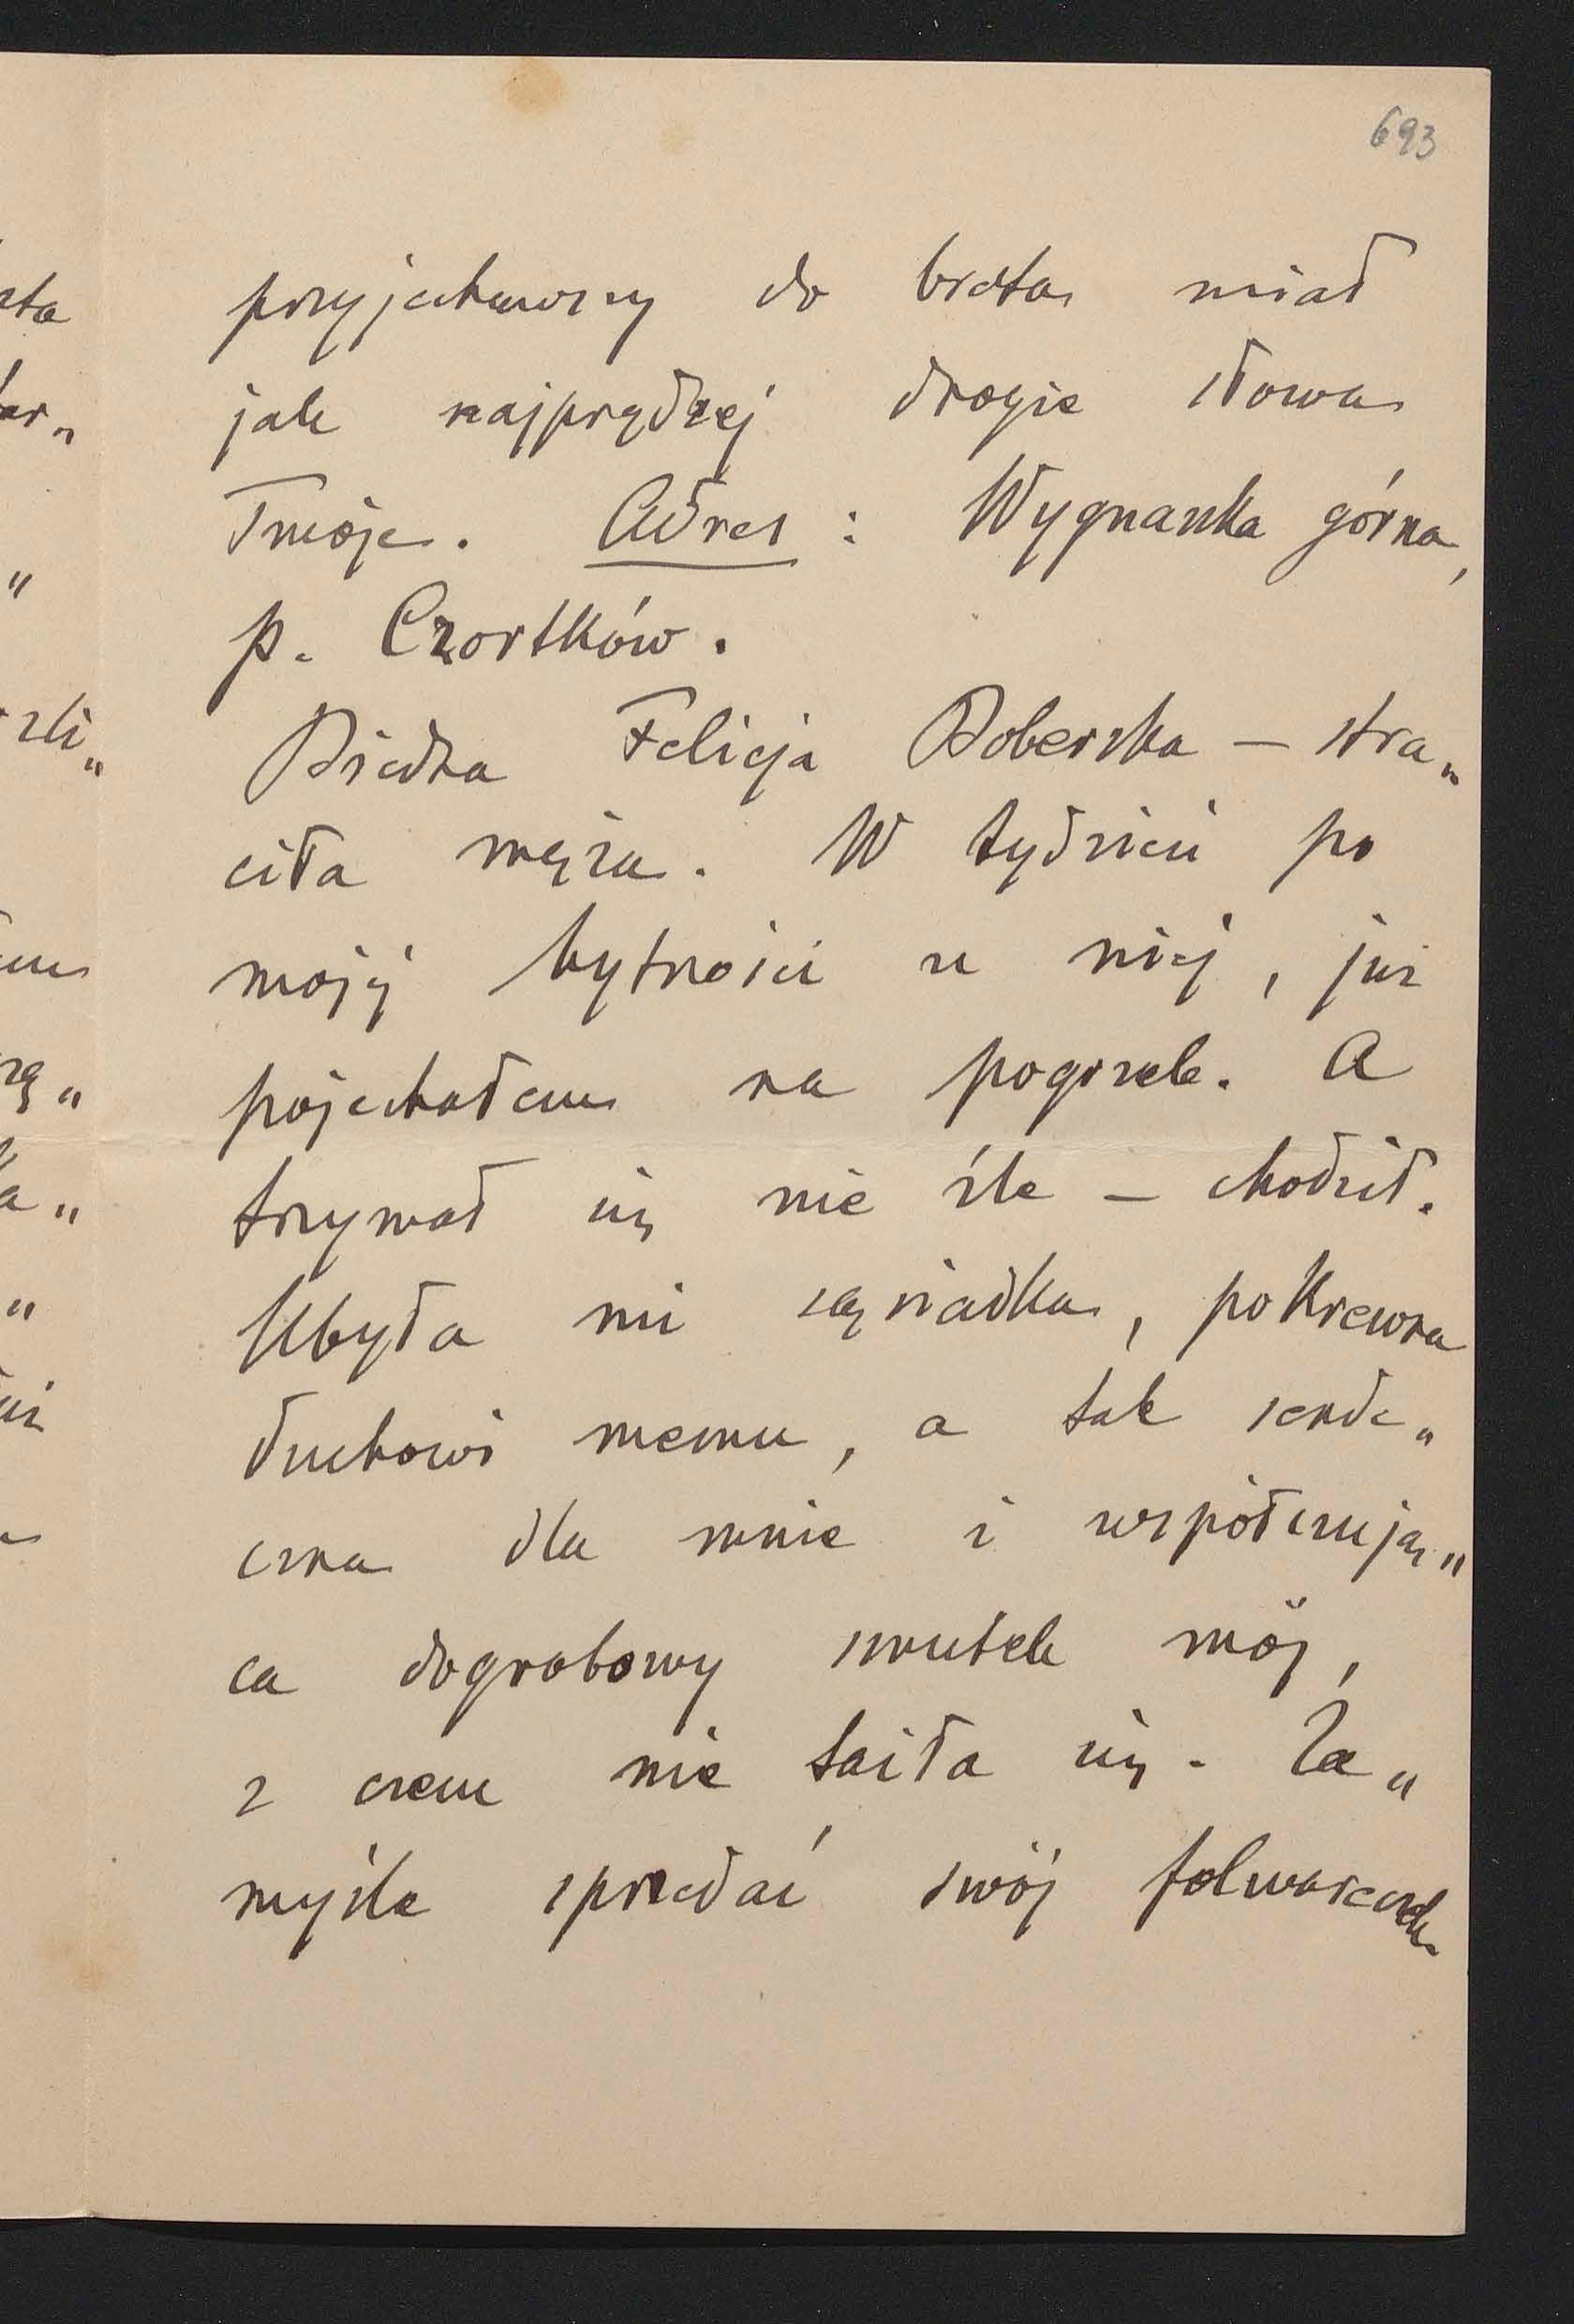 693
przyjechawszy do brata miał
jak najprędzej drogie słowa
Twoje. Adres : Wygnanka górna,
p. Czortków.
Biedna Felicja Boberska – stra„
ciła męża. W tydzień po
mojéj bytności u niéj, już
pojechałem na pogrzeb. A
trzymał się nie źle – chodził.
Ubyła mi sąsiadka, pokrewna
duchowi memu, a tak serde„
czna dla mnie i współczują„
ca dogrobowy smutek mój,
z czem nie taiła się. Za„
myśla sprzedać swój folwarczek